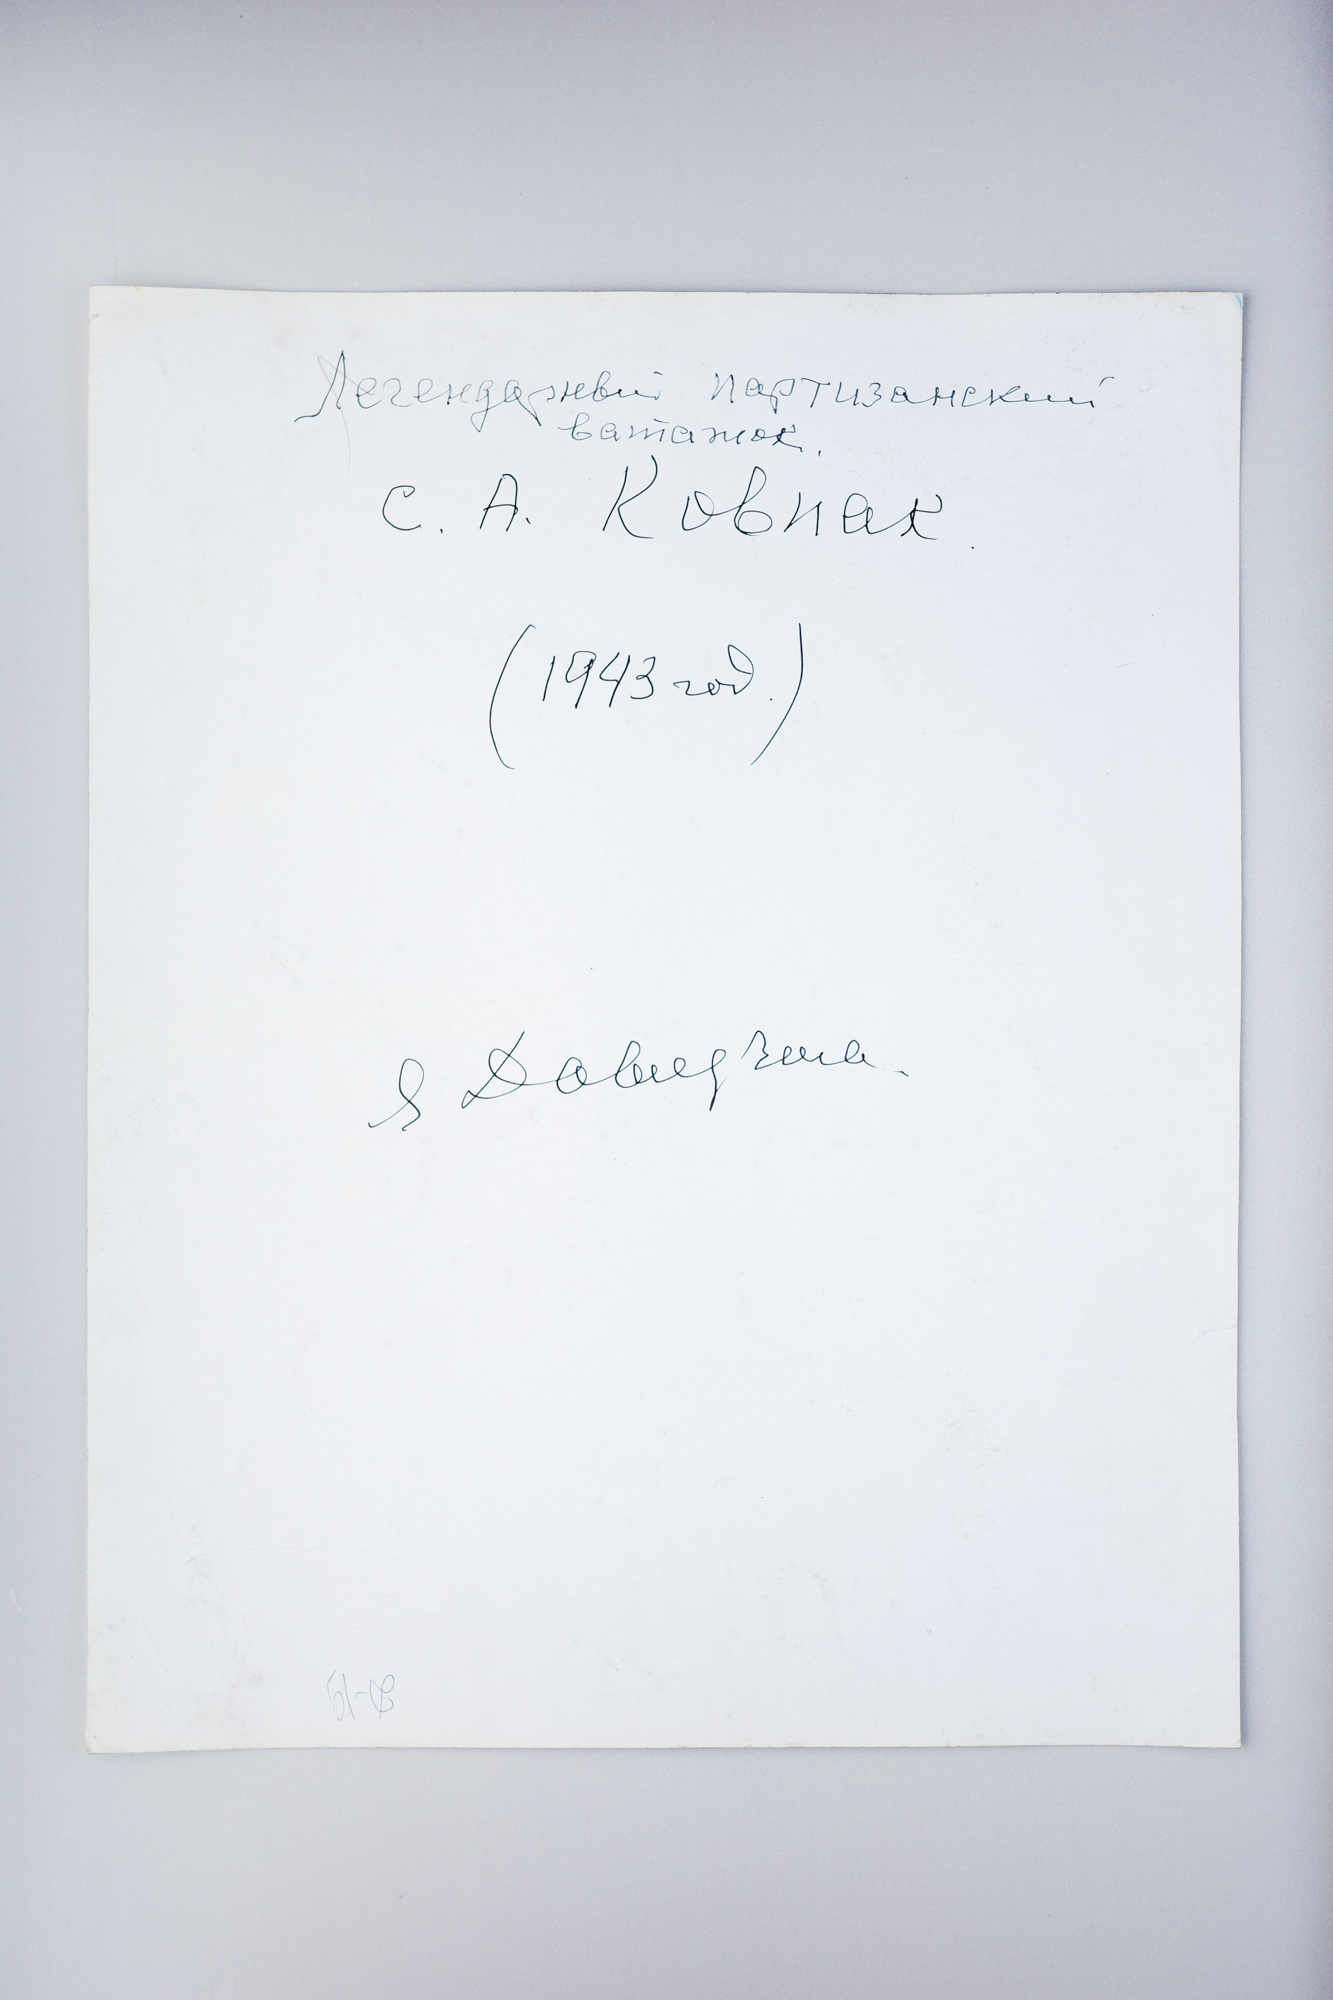 Легендарный партизанский
ватажок.
С. А. Ковпак.
(1943 год.)
Я Давидзина.